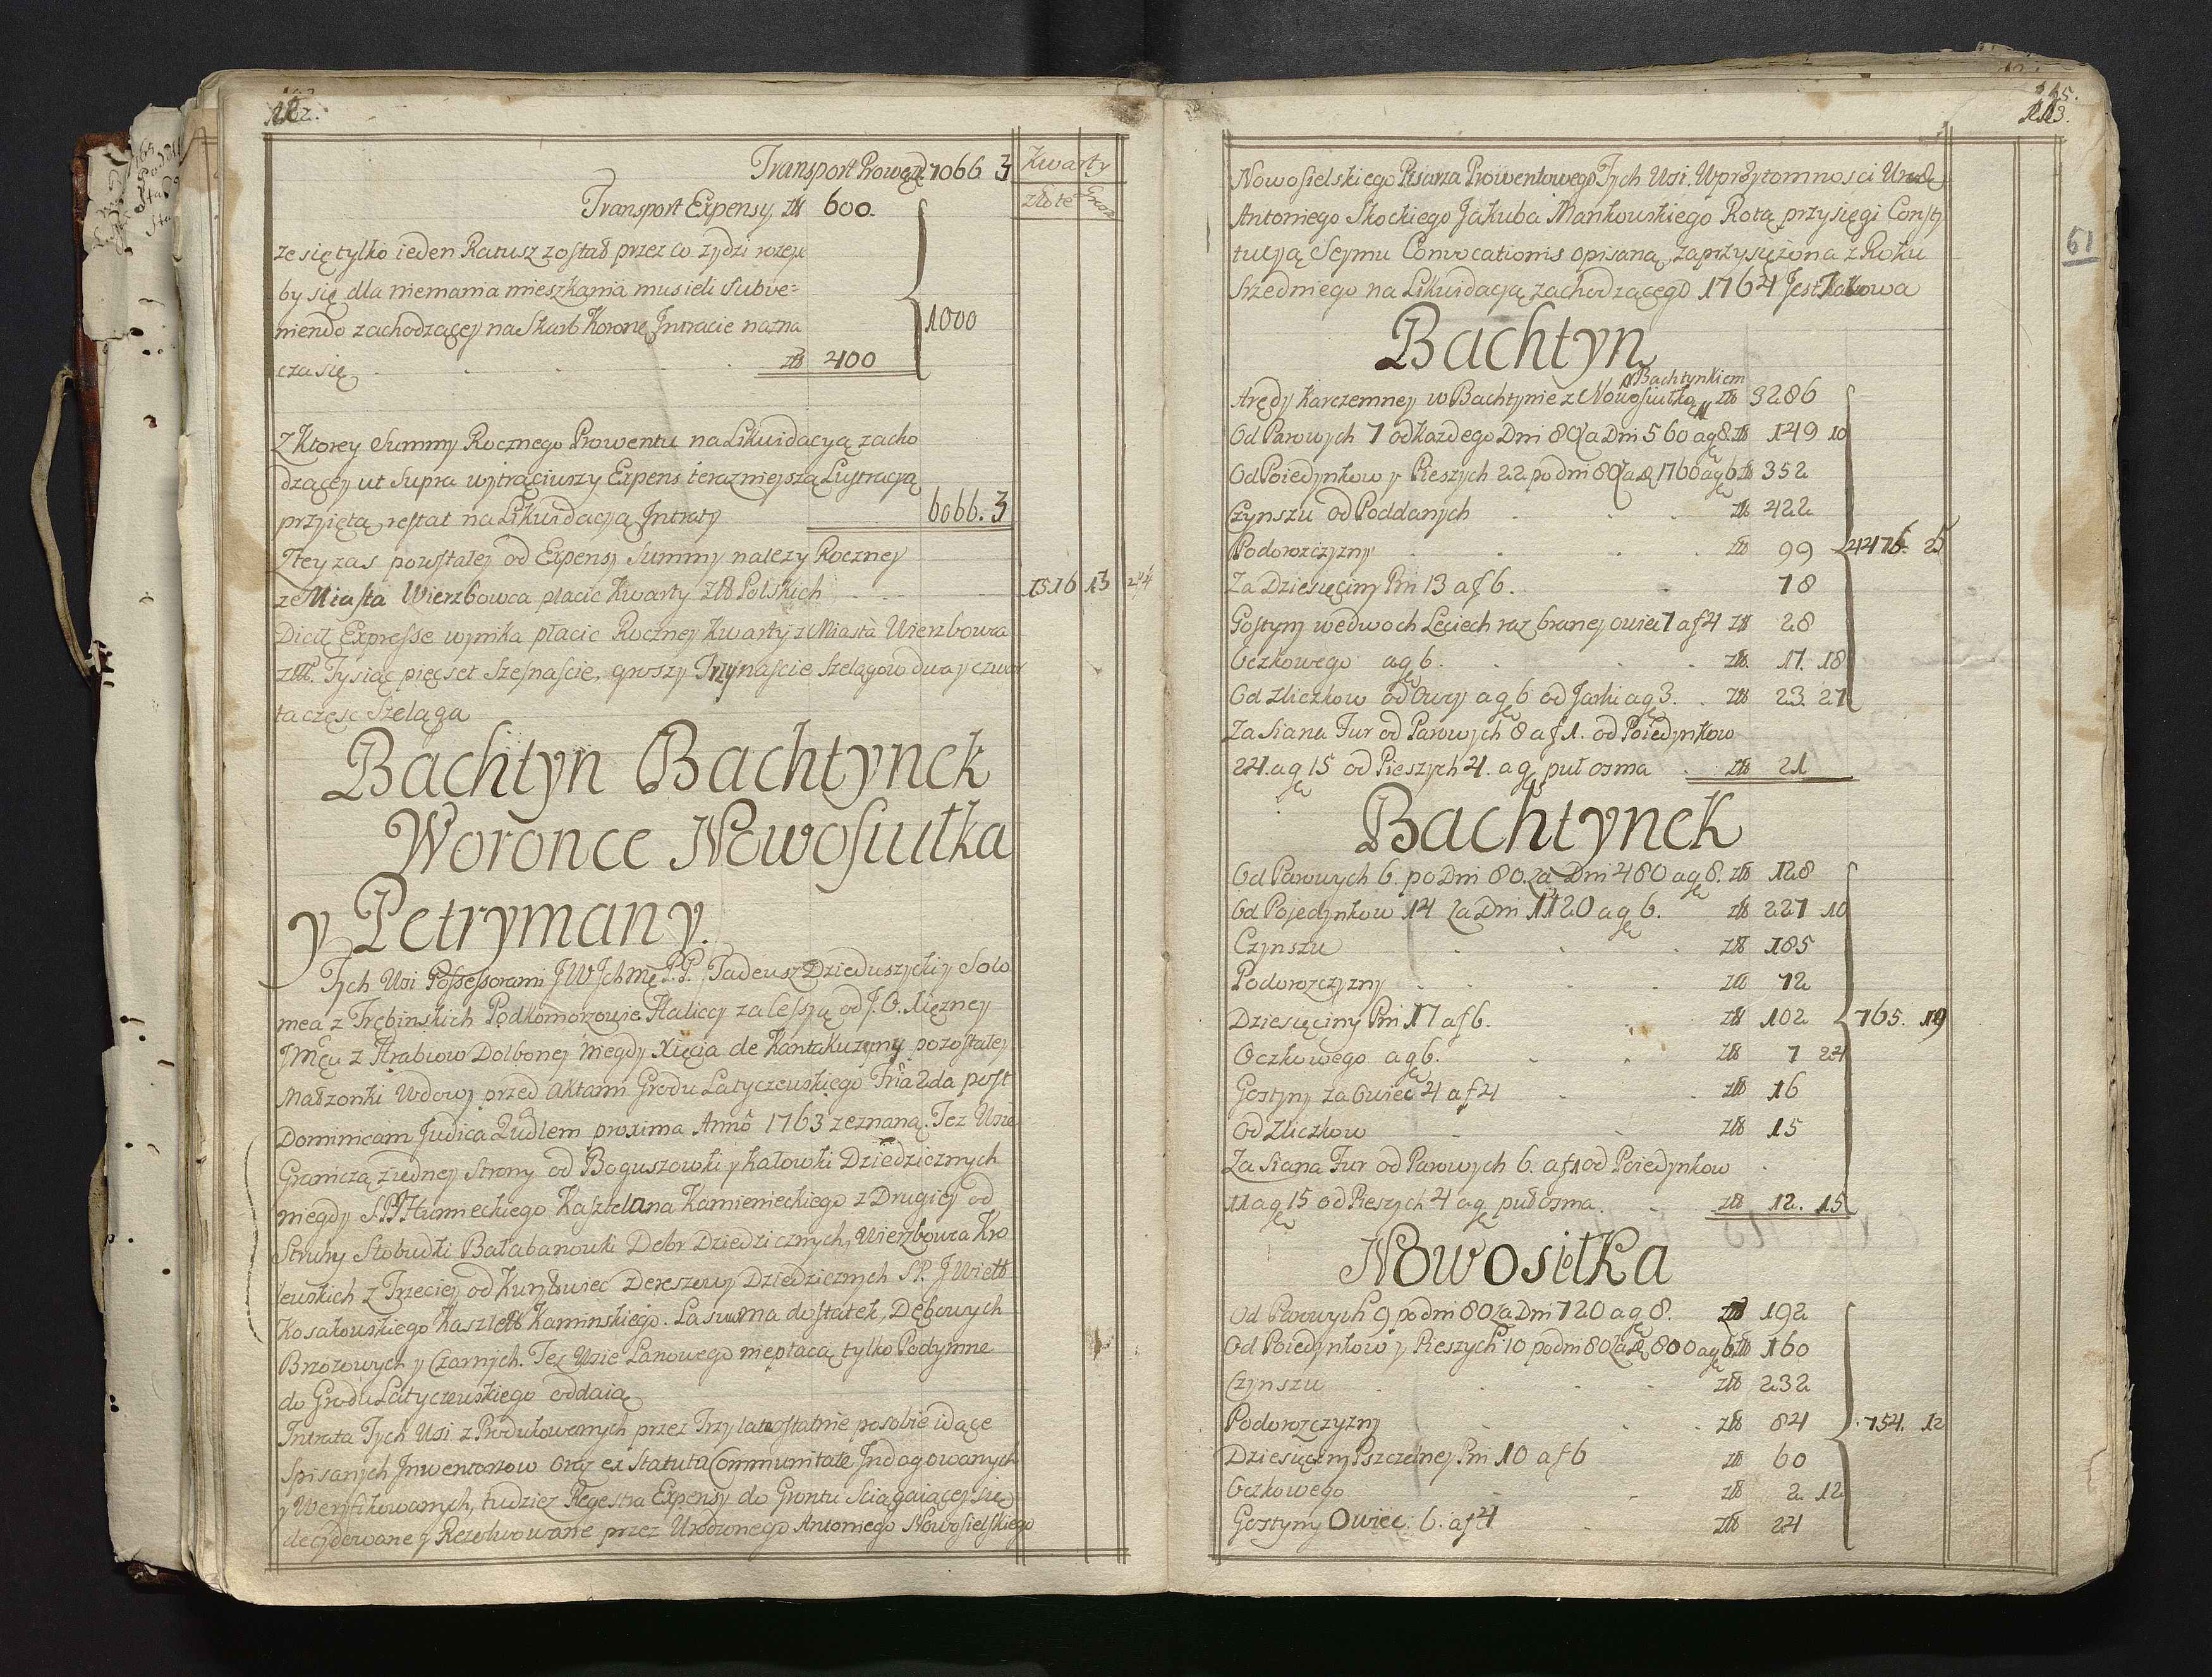 112.
Transport Prowętu 7066 3
Kwarty
złote Grosz
Transport Expensy złł 600.
ze się tylko ieden Ratusz został przez co zydzi rozeyc
by się dla niemania mieszkania musieli Subve=
niendo zachodzącey na Skarb Koroný Intracie nazna
1000
cza się . . . złł 400
Z Ktorey Summy Rocznego Prowentu na Likwidacyą zacho
dzącey ut Supra wytrąciwszy Expens terazniejszą Lustracyą
przyiętą, restat na Likwidacyą Intraty 6066. 3
Z tey zas pozostałey od Expensy Summy nalezy Roczney
ze Miasta Wierzbowca płacic Kwarty Złł Polskich 1516 13 2 1/4
Dicit Expresse wynika płacic Roczney Kwarty z Miasta Wierzbowca
złł. Tysiąc pięcset Szesnascie, groszy Trzynascie Szelągow dwa y czwar
ta częsc Szeląga
Bachtyn Bachtynek
Woronce Nowosiułka
y Petrymany.
Tych Wsi Possessorami JWJchmę P.P. Tadeusz Dzieduszycki y Salo
mea z Trębinskich Podkomorzowie Haliccy za Cessyą od J.O. Xiężney
Jmęci z Hrabiow Dolboney niegdy Xięcia de Kantakuzyny pozostałey
Małzonki Wdowy przed Aktami Grodu Latyczewskiego Fria 2da post
Dominicam Judica Qudlem proxima Anno 1763 zeznaną. Tez Wsie
Graniczą z iedney Strony od Boguszowki y Katowki Dziedzicznych
niegdy S.P. Humieckiego Kasztelana Kamienieckiego z Drugiey od
Strony Słobudki Bałabanowki Dobr Dziedzicznych, Wierzbowca Kro
lewskich z Trzeciey od Kuryłowiec Dereszowy Dziedzicznych S.P. JWielł
Kosakowskiego Kasztelł Kaminskiego. Lasu ma dostatek, Dębowych
Brzozowych y Czarnych. Tez Wsie Lanowego niepłacą tylko Podymne
do Grodu Latyczewskiego oddaią
Intrata Tych Wsi z Produkowanych przez Trzy lata ostatnie posobie idące
Spisanych Inwentarzow oraz ex Statuta Communitate Indagowanych
y Weryfikowanych, tudziez Regestra Expensy do Gruntu Sciągaiącey się
decydowane y Rezolwowane przez Urodzonego Antoniego Nowosielskiego
115.
113.
61
Nowosielskiego Pisarza Prowentowego Tych Wsi. W przytomnosci Urodz
Antoniego Skockiego Jakuba Mankowskiego Rotą przysięgi Consty
tucyą Seymu Convocationis opisaną, zaprzysiężona z Roku
Srzedniego na Likwidacyą zachodzącego 1764 Jest Takowa
Bachtyn
z Bachtynkiem
Arędy Karczemney w Bachtynie z Nowosiułką złł 3286
Od Parowych 7 od kazdego Dni 80 za Dni 560 a g 8. złł 149 10
Od Poiedynkow y Pieszych 22 po dni 80 za D. 1760 a g 6 złł 352
Czynszu od Poddanych . . . złł 422
Podorozczyzny . . . złł 99 4476. 25
Za Dziesięciny Pni 13 a f 6. . 78
Gostyny we dwoch Leciech raz braney owiec 7 a f 4 złł 28
Oczkowego a g 6. . . . złł. 17. 18
Od źliczkow od Owcy a g 6 od Jarki a g 3. . złł 23. 27
Za Siana Fur od Parowych 8 a f 1. od Poiedynkow
24. a g 15 od Pieszych 4. a g puł osma . złł 21
Bachtynek
Od Parowych 6. po Dni 80. za Dni 480 a g 8. złł 128
Od Pojedynkow 14 za Dni 1120 a g 6. złł 227 10
Czynszu . . . złł 185
Podorozczyzny . . . złł 72
Dziesięciny Pni 17 a f 6. złł 102 765. 19
Oczkowego a g 6. . . złł 7 24
Gostyny za Owiec 4 a f 4 . złł 16
Od źliczkow . . złł 15
Za Siana Fur od Parowych 6. a f 1 od Poiedynkow
11 a g 15 od Pieszych 4 a g puł osma . . złł 12. 15
Nowosiołka
Od Parowych 9 po dni 80 za Dni 720 a g 8. złł 192
Od Poiedynkow y Pieszych 10 po dni 80 za D. 800 a g 6 złł 160
Czynszu . . . złł 232
Podorozczyzny . . złł 84 754. 12
Dziesięciny Pszczelney Pni 10 a f 6 złł 60
Oczkowego . . złł 2. 12
Gostyny Owiec. 6. a f 4 . złł 24